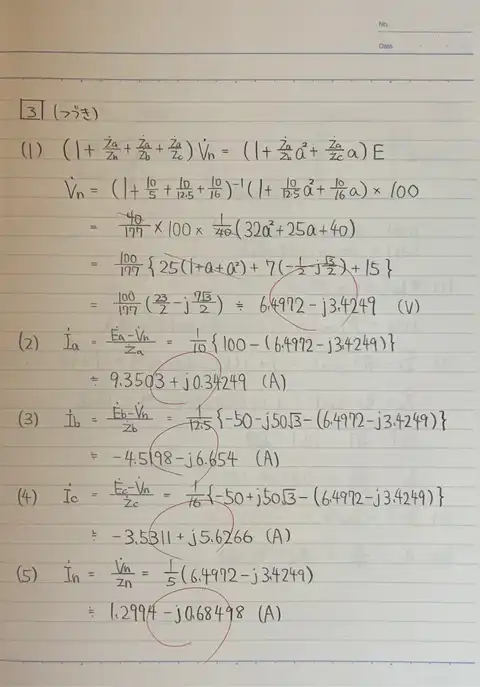 No.
Date
3 (つづき)
(1) (1 + Ża/Zn + Ża/Żb + Ża/Żc) V̇n = (1 + Ża/Zb a² + Ża/Zc a) E
V̇n = (1 + 10/5 + 10/12.5 + 10/16)⁻¹ (1 + 10/12.5 a² + 10/16 a) × 100
= 40/177 × 100 × 1/40 (32a² + 25a + 40)
= 100/177 { 25(1+a+a²) + 7(-1/2 - j√3/2) + 15 }
= 100/177 (23/2 - j 7√3/2) ≒ 6.4972 - j3.4249 (V)
(2) İa = Ėa-V̇n/Ża = 1/10 {100 - (6.4972 - j3.4249)}
≒ 9.3503 + j0.34249 (A)
(3) İb = Ėb-V̇n/Żb = 1/12.5 {-50 - j50√3 - (6.4972 - j3.4249)}
≒ -4.5198 - j6.654 (A)
(4) İc = Ėc-V̇n/Żc = 1/16 {-50 + j50√3 - (6.4972 - j3.4249)}
≒ -3.5311 + j5.6266 (A)
(5) İn = V̇n/Zn = 1/5 (6.4972 - j3.4249)
≒ 1.2994 - j0.68498 (A)